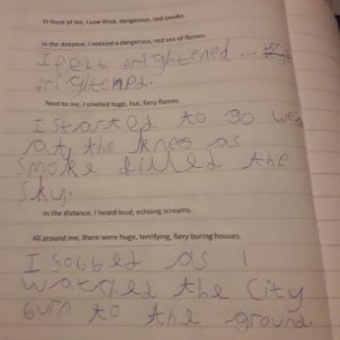 In front of me, I saw thick, dangerous, red smoke.
In the distance, I noticed a dangerous, red sea of flames.
I felt frightened...
frightened.
Next to me, I smelled huge, hot, fiery flames.
I started to go weak
at the knees as
smoke filled the
sky.
In the distance, I heard loud, echoing screams.
All around me, there were huge, terrifying, fiery buring houses.
I sobbed as I
watched the City
burn to the ground.